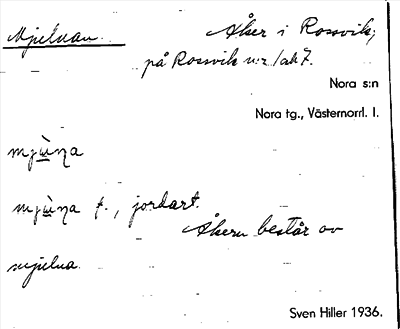 Mjelnan. Åker i Rossvik,
på Rossvik n:r 1 ak 7.
Nora s:n
Nora tg., Västernorrl. l.
mjὼ̲ṇa
mjὼ̲ṇa f., jordart.
Åkern består av
mjelna.
Sven Hiller 1936.